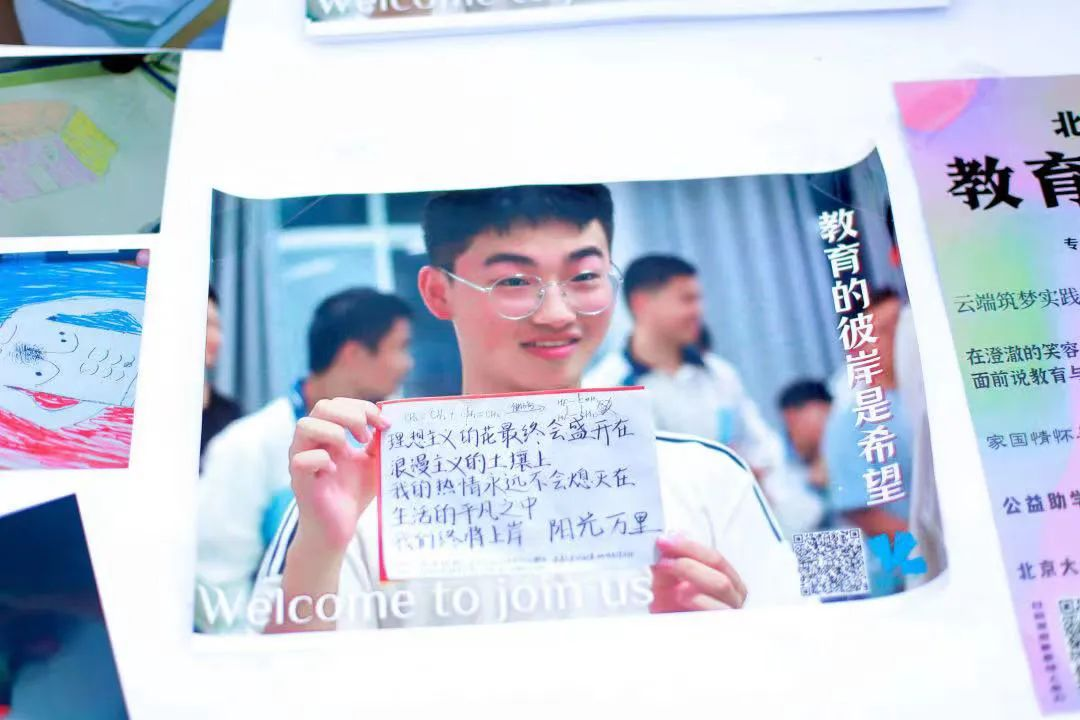 Welcome to j
教育的彼岸是希望
CH₂=CH₂ + CH₂=CH₂
理想主义的花最终会盛开在
浪漫主义的土壤上
我的热情永远不会熄灭在
生活的平凡之中
我们终将上岸 阳光万里
Welcome to join us
北
教育
专
云端筑梦实践
在澄澈的笑容
面前说教育与
家国情怀
公益助学
北京大